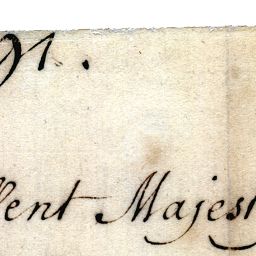 llent Majest